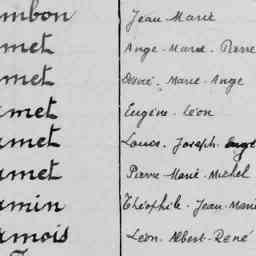 mbon Jean Marie
met Ange. Marie. Pierre
met Désiré. Marie. Ange
met Eugène. Léon
amet Louis. Joseph. Ange
amet Pierre Marie. Michel
amin Théophile. Jean. Marie
amois Léon. Albert. René